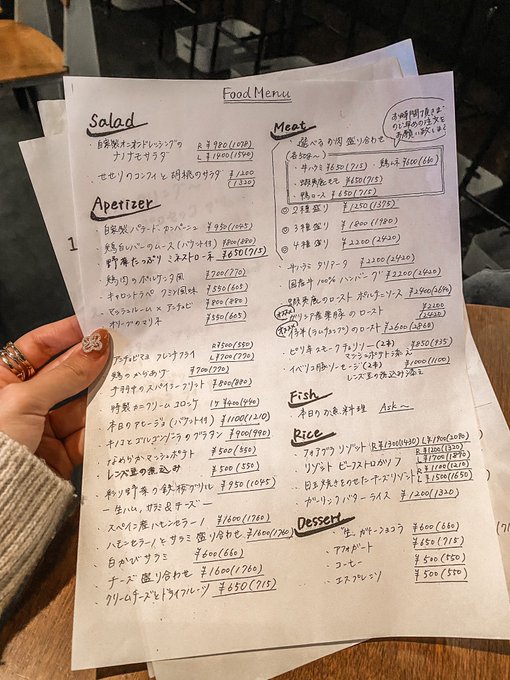 Food Menu
Salad
・自家製オニオンドレッシングの R ¥980(1078)
ナノナサラダ L ¥1400(1540)
・せせりのコンフィと胡桃のサラダ ¥1200
(1320)
Apetizer
・自家製パテ・ド・カンパーニュ ¥950(1045)
・鶏白レバーのムース(バケット付) ¥800(880)
・野菜たっぷりミネストローネ ¥650(715)
・鶏肉のポルケッタ風 ¥700(770)
・キャロットラペ クミン風味 ¥550(605)
・マッシュルーム×アンチョビ ¥800(880)
オリーブのマリネ ¥550(605)
R ¥500(550)
・アンチョビマヨ フレンチフライ L ¥700(770)
・鶏のからあげ ¥700(770)
・スパイシーフリット ¥800(880)
・特製カニクリームコロッケ 1ヶ ¥400(440)
・本日のアヒージョ(バケット付) ¥1100(1210)
・キノコとゴルゴンゾーラのグラタン ¥900(990)
・なめらかマッシュポテト ¥500(550)
・レンズ豆の煮込み ¥500(550)
・彩り野菜の鉄板グリル ¥950(1045)
ー生ハム、サラミ&チーズー
・スペイン産ハモンセラーノ ¥1600(1760)
・ハモンセラーノとサラミ盛り合わせ ¥1600(1760)
・白かびサラミ ¥600(660)
・チーズ盛り合わせ ¥1600(1760)
・クリームチーズとドライフルーツ ¥650(715)
Meat
お時間頂きます
ので早めの注文を
お願い致します
・選べるお肉盛り合わせ
各50g〜)
・牛ハラミ ¥650(715) ・鶏モモ ¥600(660)
・蝦夷鹿モモ ¥650(715)
・鴨ロース ¥650(715)
◎2種盛り ¥1250(1375)
◎3種盛り ¥1800(1980)
◎4種盛り ¥2200(2420)
・牛ハラミ タリアータ ¥2200(2420)
・国産牛100%ハンバーグ ¥2200(2420)
・蝦夷鹿のロースト ポルチーニソース ¥2400(2640)
ガリシア産栗豚のロースト ¥2200
(2420)
仔羊(ラムチョップ)のロースト ¥2600(2860)
・ピリ辛スモークチョリソー(2本) ¥850(935)
マッシュポテト添え
・イベリコ豚ソーセージ(2本) ¥1000(1100)
レンズ豆の煮込み添え
Fish
・本日のお魚料理 Ask〜
Rice
・フォアグラリゾット R ¥1300(1430) L ¥1900(2090)
・リゾットビーフストロガノフ R ¥1200(1320)
L ¥1700(1870)
・目玉焼きをのせたチーズリゾット R ¥1100(1210)
L ¥1500(1650)
・ガーリックバターライス ¥1200(1320)
Dessert
・"生"ガトーショコラ ¥600(660)
・アフォガート ¥650(715)
・コーヒー ¥500(550)
・エスプレッソ ¥500(550)